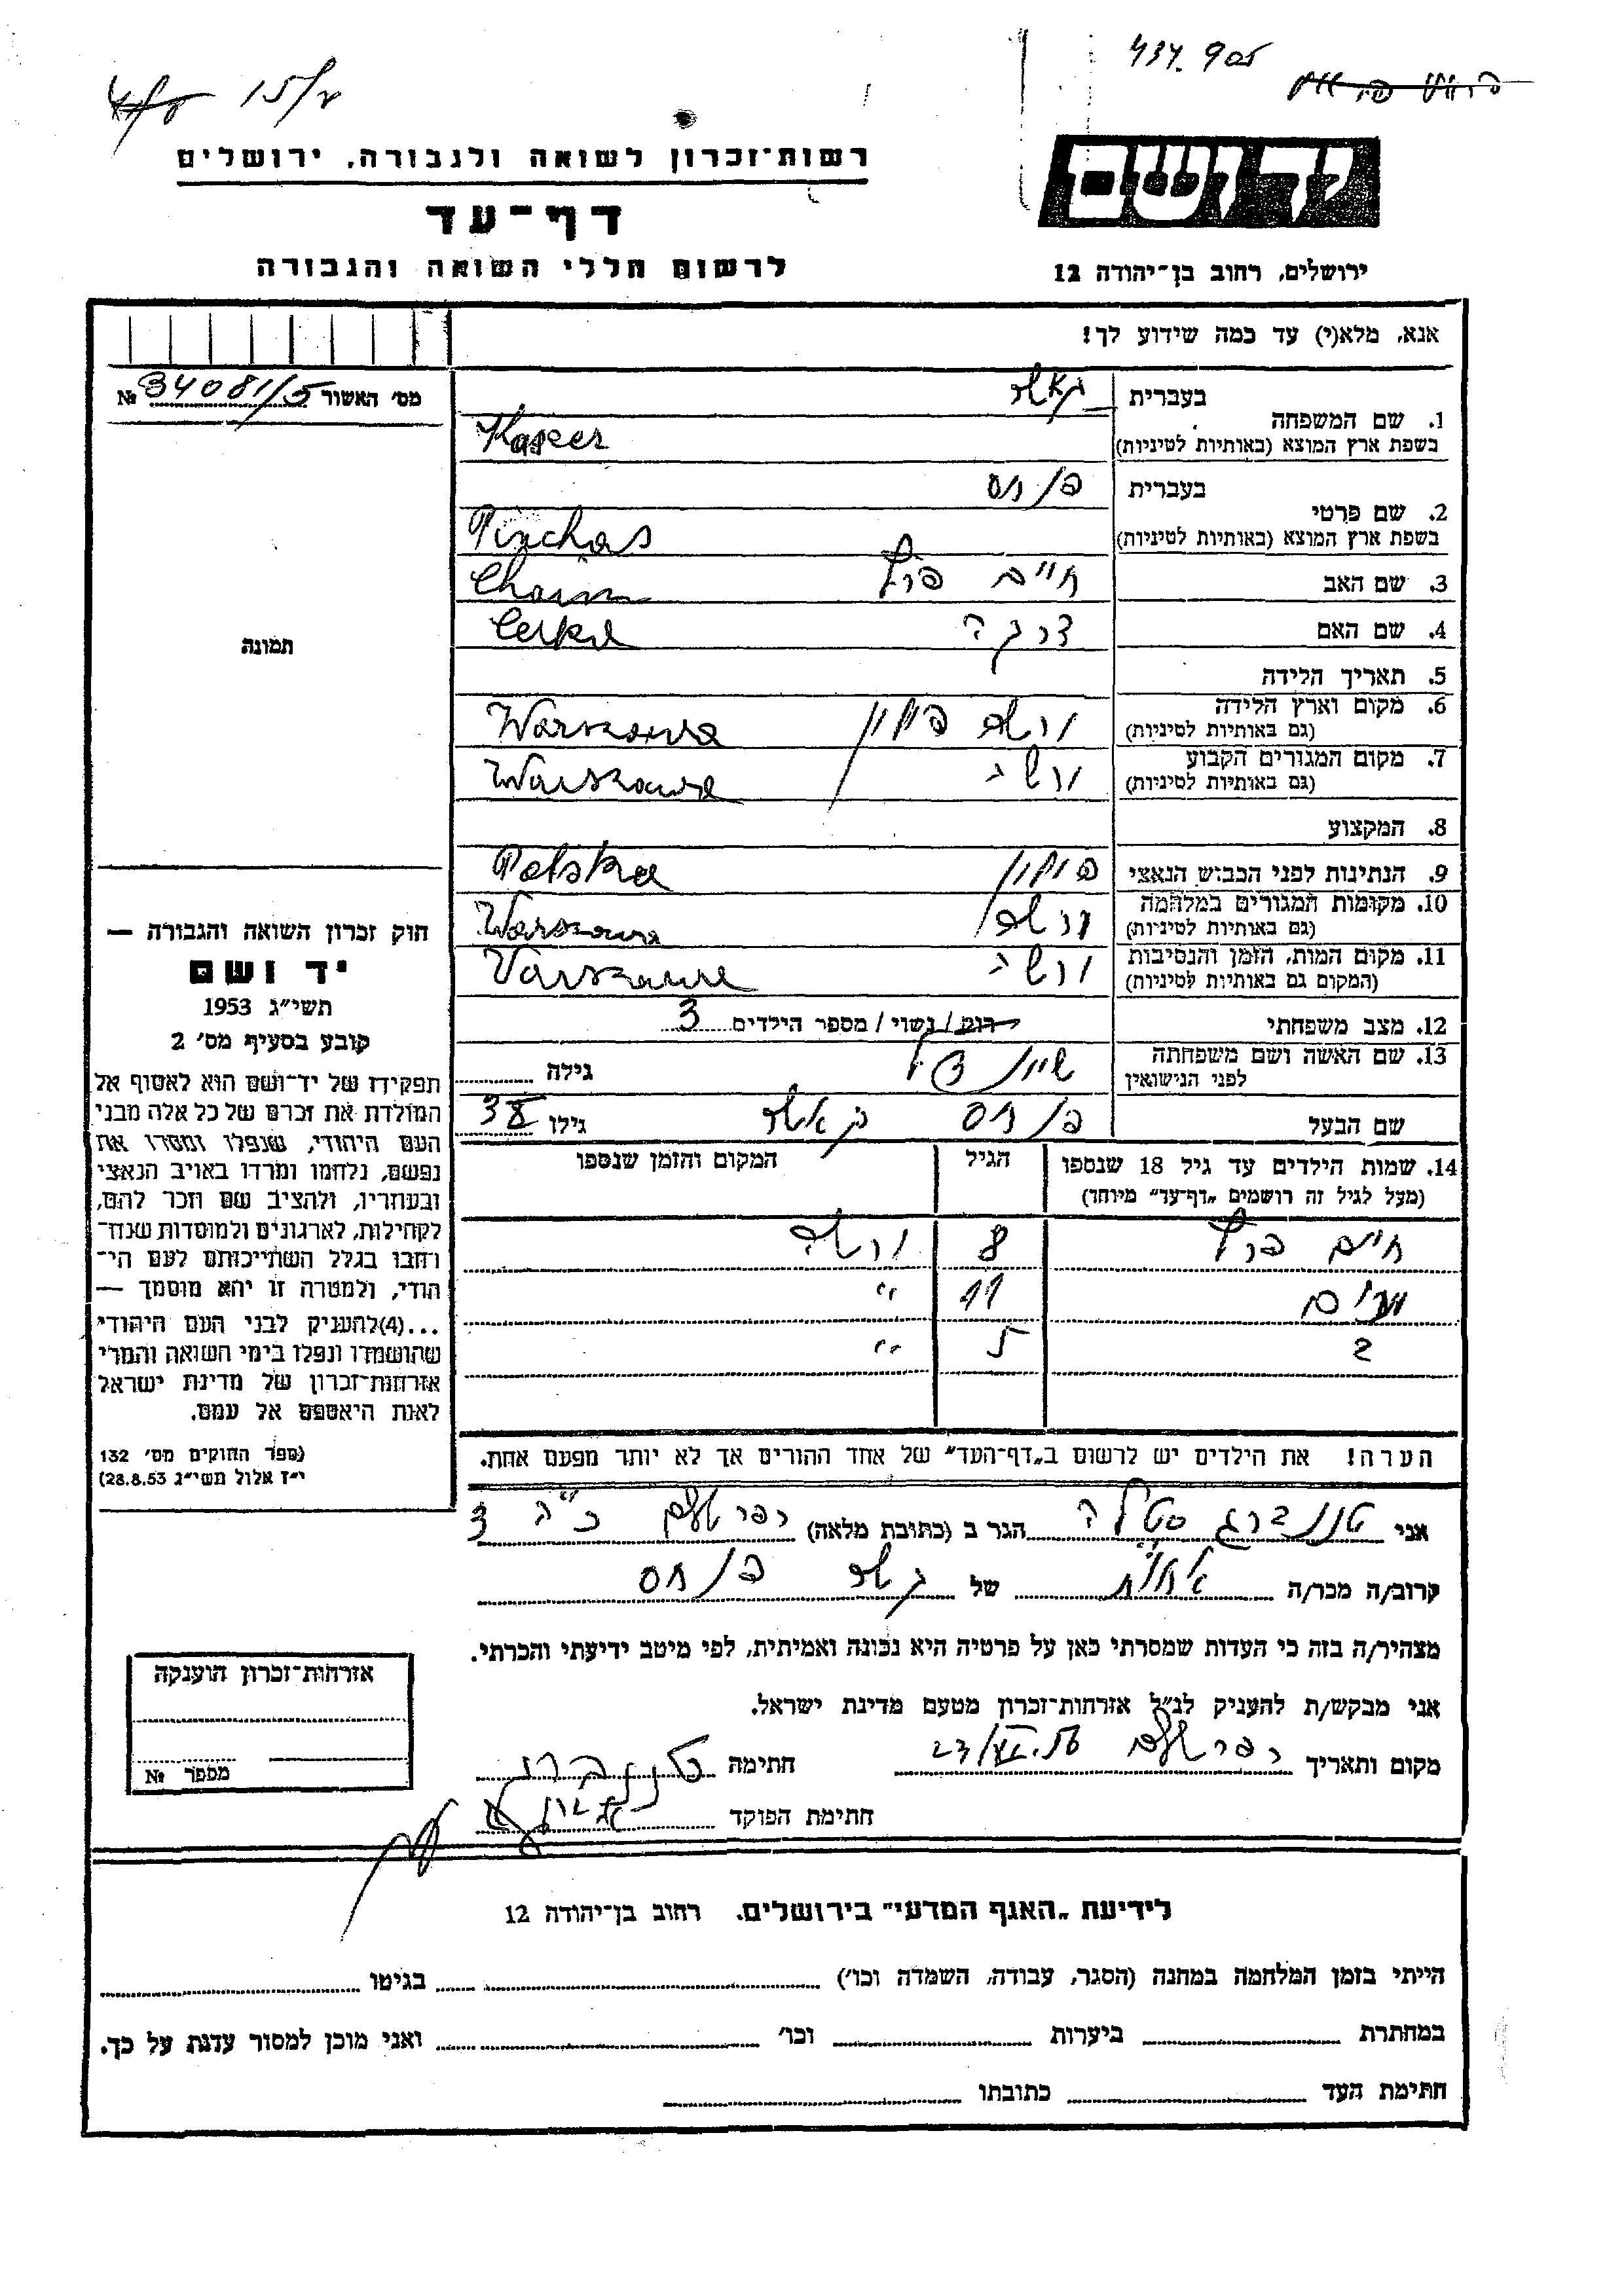 434.905
15/
רשות־זכרון לשואה ולגבורה, ירושלים
יד ושם
דף־עד
לרשום חללי השואה והגבורה
ירושלים, רחוב בן־יהודה 12
אנא, מלא(י) עד כמה שידוע לך!
מס׳ האשור № 34081/5
1. שם המשפחה בעברית
בשפת ארץ המוצא (באותיות לטיניות)
2. שם פרטי בעברית פנחס
בשפת ארץ המוצא (באותיות לטיניות) Pinchas
3. שם האב חיים Chaim
4. שם האם Cerka
5. תאריך הלידה
6. מקום וארץ הלידה פולין Warszawa
(גם באותיות לטיניות)
7. מקום המגורים הקבוע ורשה Warszawa
(גם באותיות לטיניות)
8. המקצוע
9. הנתינות לפני הכבוש הנאצי פולין Polska
10. מקומות המגורים במלחמה Warszawa
(גם באותיות לטיניות)
11. מקום המות, הזמן והנסיבות ורשה Warszawa
(המקום גם באותיות לטיניות)
12. מצב משפחתי רווק/נשוי/מספר הילדים 3
13. שם האשה ושם משפחתה
לפני הנישואין גילה
שם הבעל פנחס גילו 38
14. שמות הילדים עד גיל 18 שנספו הגיל המקום והזמן שנספו
(מעל לגיל זה רושמים „דף־עד״ מיוחד)
חיים 8 ורשה
11 ״
5 ״
הערה! את הילדים יש לרשום ב„דף־העד״ של אחד ההורים אך לא יותר מפעם אחת.
תמונה
חוק זכרון השואה והגבורה —
יד ושם
תשי״ג 1953
קובע בסעיף מס׳ 2
תפקידו של יד־ושם הוא לאסוף אל
המולדת את זכרם של כל אלה מבני
העם היהודי, שנפלו ומסרו את
נפשם, נלחמו ומרדו באויב הנאצי
ובעוזריו, ולהציב שם וזכר להם,
לקהילות, לארגונים ולמוסדות שנח־
רחבו בגלל השתייכותם לעם הי־
הודי, ולמטרה זו יהא מוסמך —
...(4)להעניק לבני העם היהודי
שהושמדו ונפלו בימי השואה והמרי
אזרחות־זכרון של מדינת ישראל
לאות היאספם אל עמם.
(ספר החוקים מס׳ 132
י״ז אלול תשי״ג 28.8.53)
אני טננברג סטלה הגר ב (כתובת מלאה)
קרוב/ה מכר/ה אחות של פנחס
מצהיר/ה בזה כי העדות שמסרתי כאן על פרטיה היא נכונה ואמיתית, לפי מיטב ידיעתי והכרתי.
אני מבקש/ת להעניק לנ״ל אזרחות־זכרון מטעם מדינת ישראל.
מקום ותאריך חתימה
חתימת הפוקד
אזרחות־זכרון הוענקה
מספר №
לידיעת „האגף המדעי״ בירושלים. רחוב בן־יהודה 12
הייתי בזמן המלחמה במחנה (הסגר, עבודה, השמדה וכו׳) בגיטו
במחתרת ביערות וכו׳ ואני מוכן למסור עדות על כך.
חתימת העד כתובתו